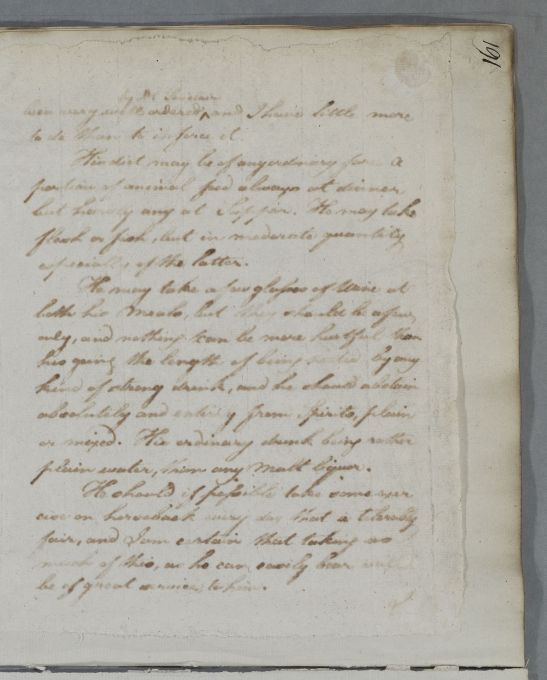 161
by Dr Sinclair
been very well ordered, and I have little more
to do than to inforce it
His diet may be of any ordinary fare. A
portion of animal food always at dinner,
but hardly any at Supper. He may take
flesh or fish, but in moderate quantity
especially of the latter.
He may take a few glasses of Wine at
both his Meals, but they should be a few
only, and nothing can be more hurtful than
his going the length of being heated by any
kind of strong drink, and he should abstain
absolutely and entirely from Spirits, plain
or mixed. His ordinary drink being rather
plain water, than any Malt liquor.
He should if possible take some exer
cise on horseback every day that is tolerably
fair, and I am certain that taking as
much of this, as he can easily bear will
be of great service to him.